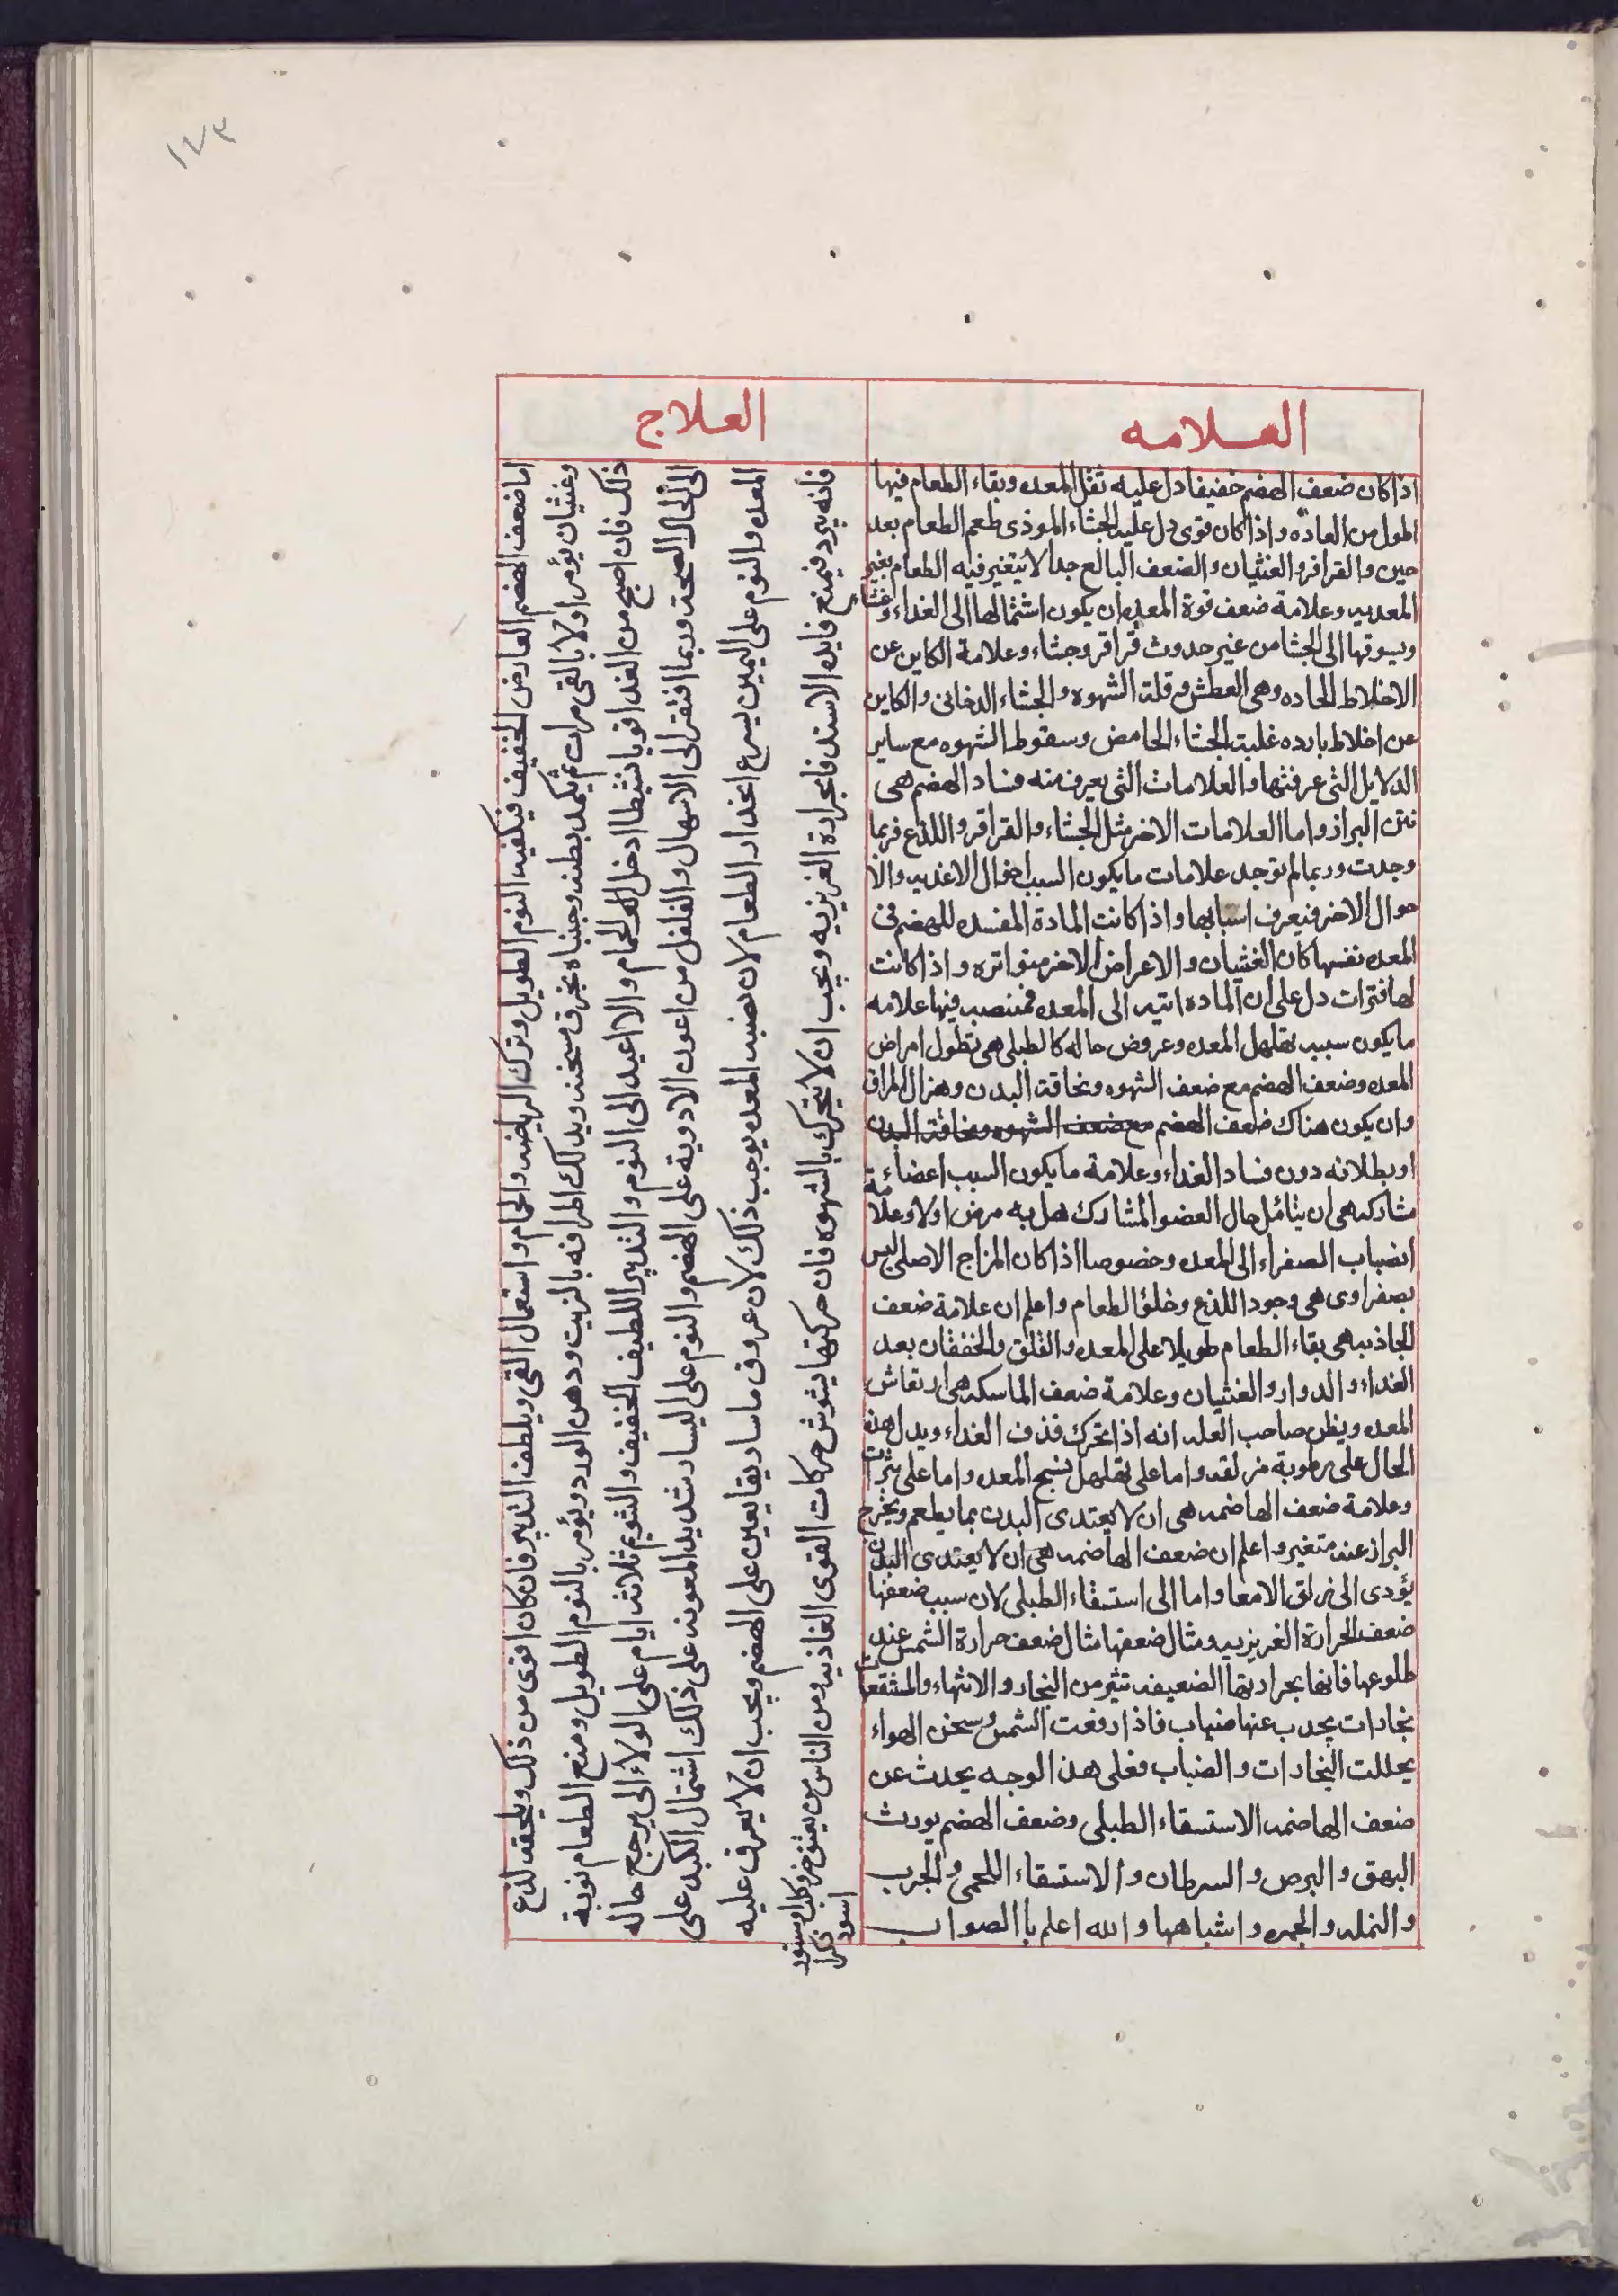 ١٤٣
العلامه
العلاج
اذا كان ضعف الهضم خفيفا دل عليه ثقل المعده وبقاء الطعام فيها
المول من العاده واذا كان قوى دل عليه الجشاء الموذى طعم الطعام بعد
حين والقراقر والغثيان والضعف البالغ جدا لا يتغير فيه الطعام بغير
المعديه وعلامة ضعف قوة المعده ان يكون اشتمالها الى الغداء وغشا
ويسوقها الى الجشا من غير حدوث قراقر وجشاء وعلامة الكاين عن
الاخلاط الحاده وهى العطش وقلة الشهوه والجشاء الدخانى والكاين
عن اخلاط بارده غلبت الجشاء الحامض وسقوط الشهوه مع ساير
الدلايل التى عرفتها والعلامات التى يعرف منه فساد الهضم هى
نتن البراز واما العلامات الاخر مثل الجشاء والقراقر واللذع فربما
وجدت وربما لم توجد علامات ما يكون السبب احوال الاغديه والا
حوال الاخر فيعرف اسبابها واذا كانت المادة المفسده للهضم فى
المعده نفسها كان الغثيان والاعراض الاخر متواتره واذا كانت
لها فترات دل على ان الماده اتيه الى المعده فمنصب فيها علامه
ما يكون سببه تهلهل المعده وعروض حاله كالطبلى هى تطول امراض
المعده وضعف الهضم مع ضعف الشهوه ونحافة البدن وهزال المراق
وان يكون هناك ضعف الهضم مع ضعف الشهوه ونحافة البدن
او بطلانه دون فساد الغداء وعلامة ما يكون السبب اعضاء
مشاركه هى ان يتامل حال العضو المشارك هل به مرض اولا وعلامة
انصباب الصفراء الى المعده وخصوصا اذا كان المزاج الاصلى ليس
بصفراوى هى وجود اللذع وخلو الطعام واعلم ان علامة ضعف
الجاذبه هى بقاء الطعام طويلا على المعده والقلق والخفقان بعد
الغداء والدوار والغثيان وعلامة ضعف الماسكه هى ارتعاش
المعده ويظن صاحب العله انه اذا تحرك قذف الغداء ويدل هذه
الحال على رطوبة مزلقه واما على تهلهل نسج المعده واما على بثرات
وعلامة ضعف الهاضمه هى ان لا يعتدى البدن بما يطعم ويخرج
البراز عنه متغير واعلم ان ضعف الهاضمه هى ان لا يعتدى البدن
يؤدى الى زلق الامعا واما الى استسقاء الطبلى لان سبب ضعفها
ضعف الحرارة الغريزيه ومثال ضعفها مثال ضعف حرارة الشمس عند
طلوعها فانها بحرارتها الضعيفه تثير من البخار والانتهاء والمنتقعات
بخارات يحدب عنها ضباب فاذا رفعت الشمس وسخن الهواء
يحللت البخارات والضباب فعلى هذا الوجه يحدث عن
ضعف الهاضمه الاستسقاء الطبلى وضعف الهضم يورث
البهق والبرص والسرطان والاستسقاء اللحمى والجرب
والنمله والجمره واشباهها والله اعلم باالصواب
اما ضعف الهضم العارض الخفيف فيكفيه النوم الطويل وترك الرياضه والحمام واستعمال القى ويلطف التدبير فان كان اقوى من ذلك ويلحقه لذع
وغثيان يؤمر اولا بالقى مرات ثم يكمد بطنه وجنباه بخرق مسخنه ويدلك المراقه بالزيت ودهن الورد ويؤمر بالنوم الطويل ومنع الطعام نوبة
ذلك فان اصبح من الغد قويا نشيطا ادخل الحمام والا اعيد الى النوم والتدبير اللطيف الخفيف والنوم ثلاثة ايام على الولاء الى يرجع حاله
الى الحال الصحه وربما افتقر الى الاسهال والفلفل من اعون الادوية على الهضم والنوم على اليسار شديد المعونه على ذلك اشتمال الكبد على
المعده والنوم على اليمين يسرع انحدار الطعام لان نصبه المعده يوجب ذلك لان عروق ماساريقا يعين على الهضم ويجب ان لا يعرق عليه
فانه يبرد فيمنع فايده الاستدفا بحرارة الغريزيه ويجب ان لا يتحرك بالشهوه فان حركتها يشوش حركات القوى الغاذيه ومن الناس من يعتنق جرو كلب اوسنور
اسود ذكرا